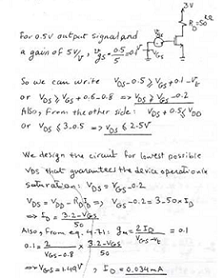 3V
R_D=50kΩ
For 0.5V output signal and
a gain of 5V/V, v_gs = 0.5/5 = 0.1V
So we can write V_DS-0.5 ≥ V_GS+0.1-V_t
or V_DS ≥ V_GS+0.6-0.8 => V_DS ≥ V_GS-0.2
Also, from the other side: V_DS+0.5 ≤ V_DD
or V_DS ≤ 3-0.5 => V_DS ≤ 2.5V
We design the circuit for lowest possible
V_DS that guarantees the device operation in
saturation: V_DS = V_GS-0.2
V_DS = V_DD-R_D I_D => V_GS-0.2 = 3-50×I_D
=> I_D = (3.2-V_GS)/50
Also, from eq. 4.71: g_m = 2I_D/(V_GS-V_t) = 0.1
0.1 = 2/(V_GS-0.8) × (3.2-V_GS)/50
=> V_GS = 1.49V, I_D = 0.034mA